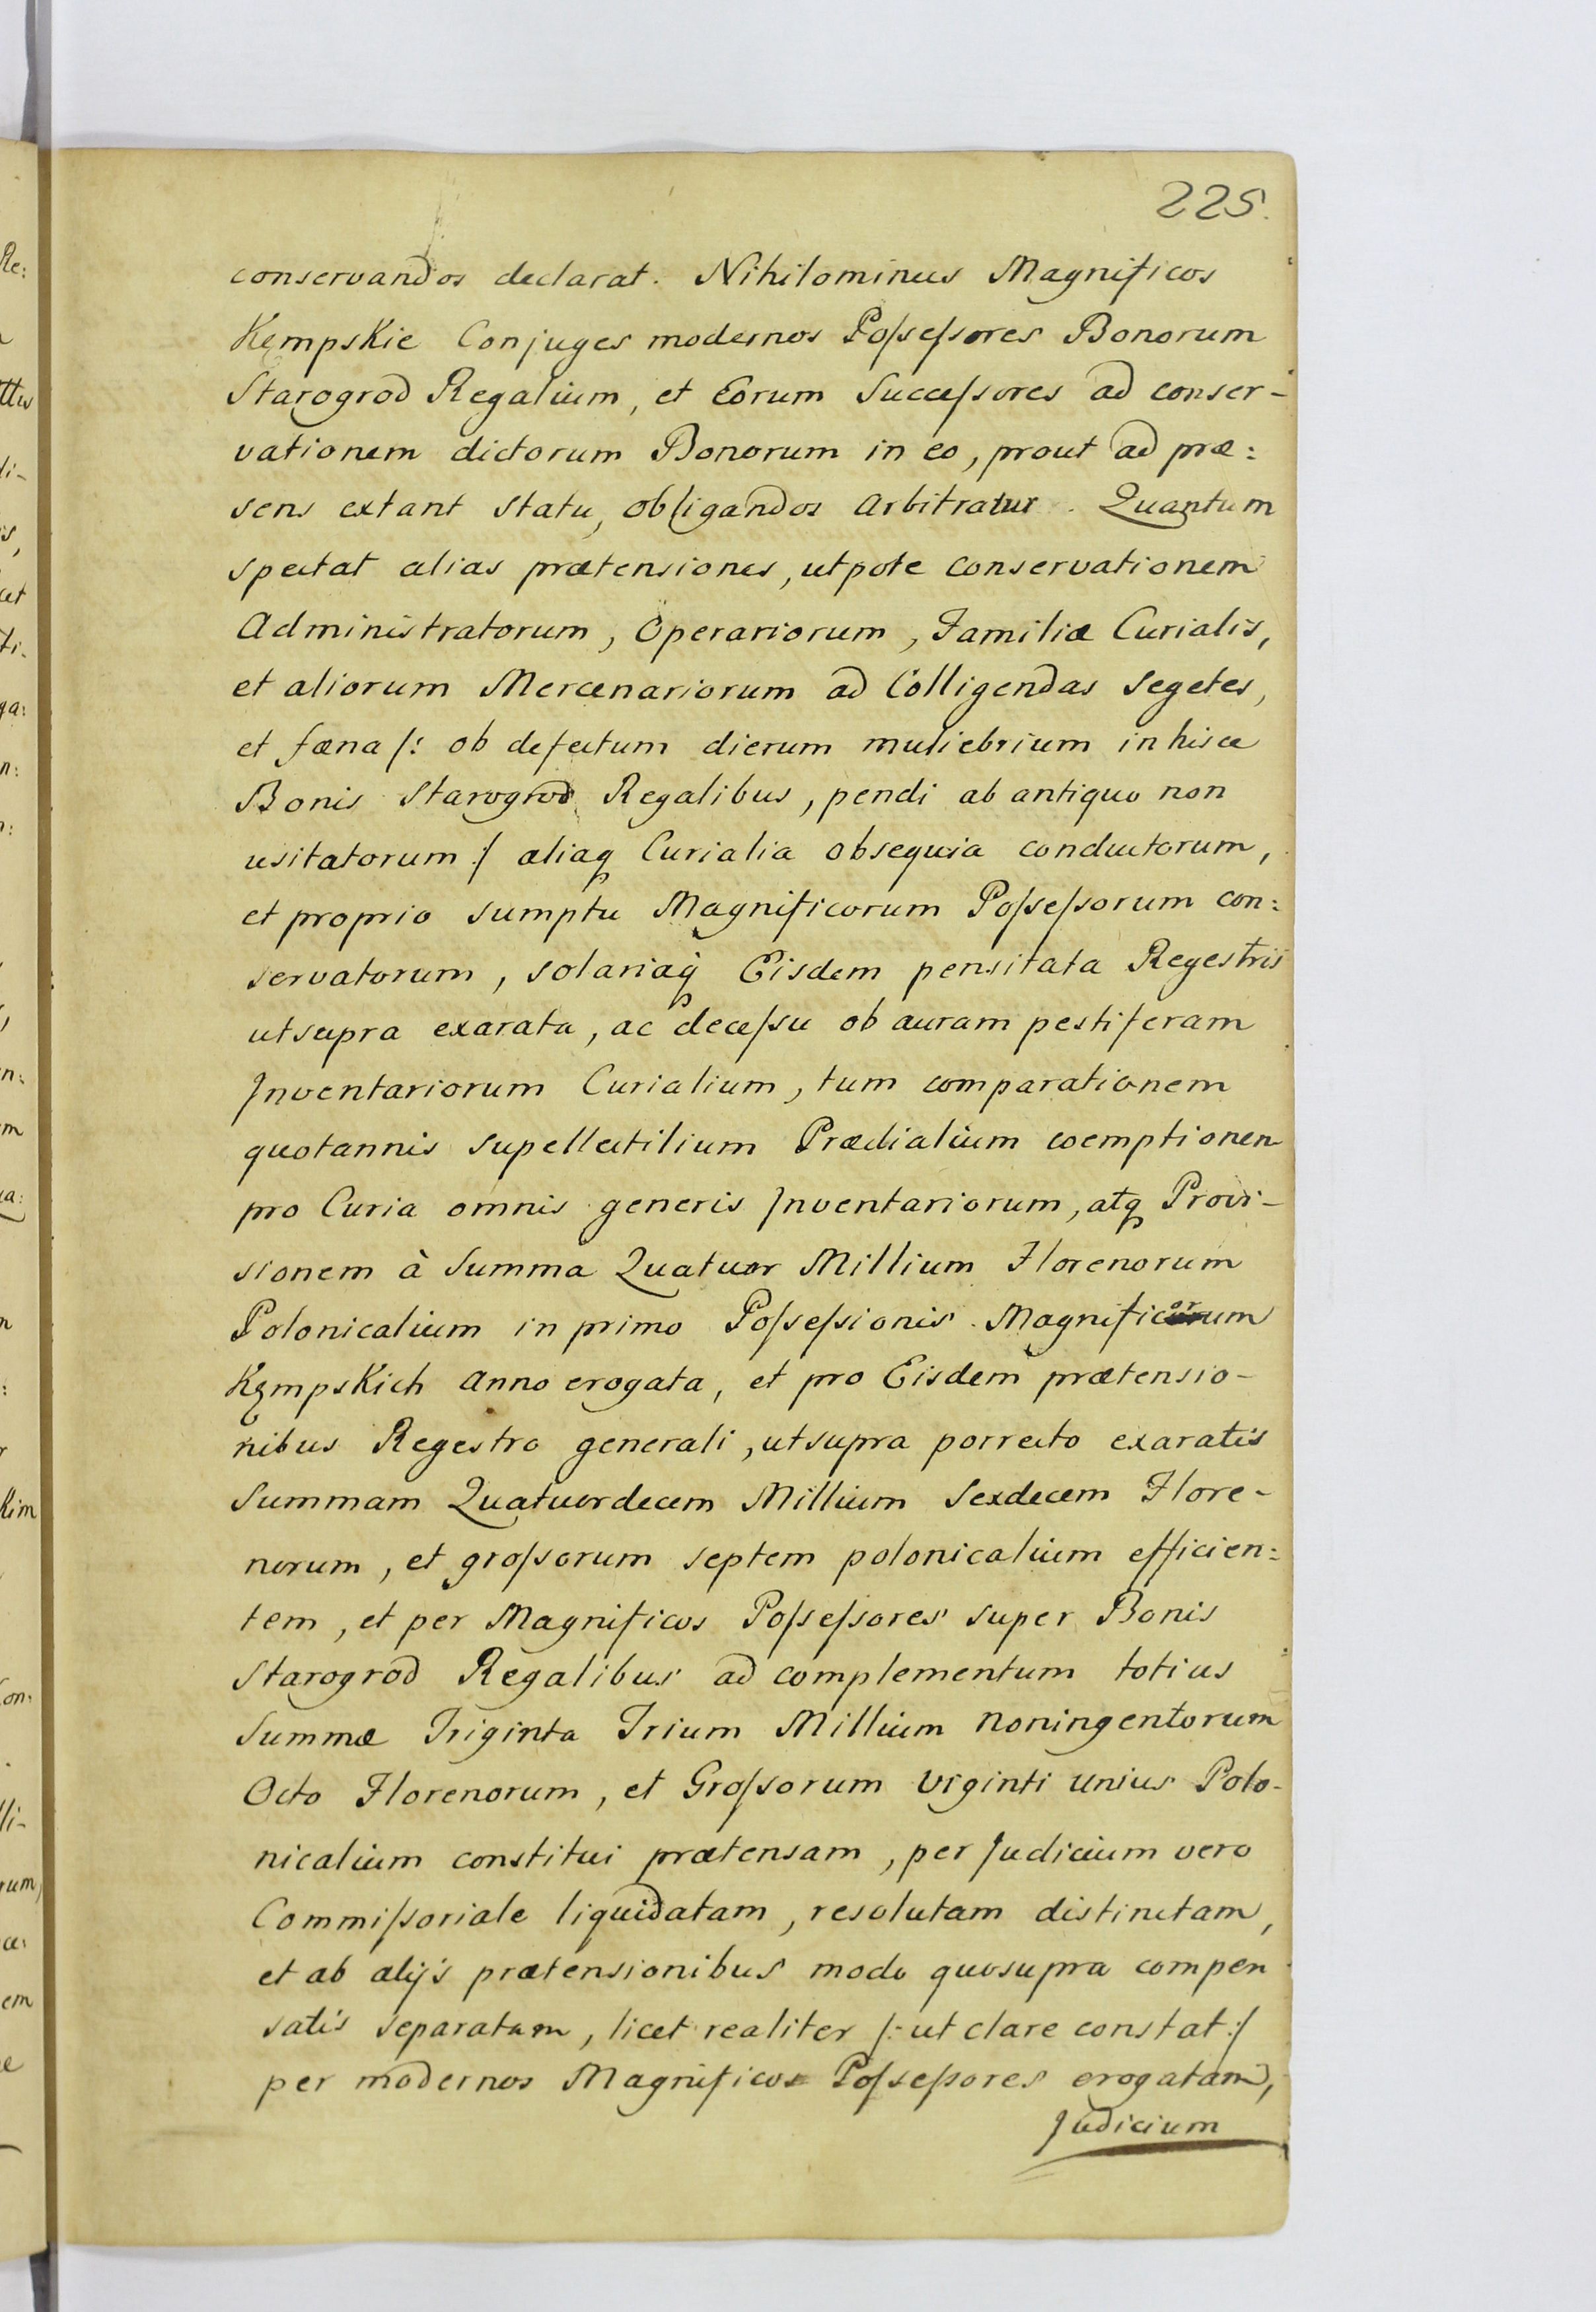 225.
conservandos declarat. Nihilominus Magnificos
Kęmpskie Conjuges modernos Poſseſsores Bonorum
Starogrod Regalium, et Eorum Succeſsores ad conser-
vationem dictorum Bonorum in eo, prout ad præ:
sens extant statu, obligandos arbitratur. Quantum
spectat alias prætensiones, utpote conservationem
Administratorum, Operariorum, Familiæ Curialis,
et aliorum Mercenariorum ad Colligendas segetes,
et fœna /: ob defectum dierum muliebrium in hisce
Bonis Starogrod Regalibus, pendi ab antiquo non
usitatorum :/ aliaq Curialia obsequia conductorum,
et proprio sumptu Magnificorum Poſseſsorum con:
servatorum, solariaq Eisdem pensitata Regestris
utsupra exarata, ac deceſsu ob auram pestiferam
Inventariorum Curialium, tum comparationem
quotannis supellectilium Prædialium coemptionem
pro Curia omnis generis Inventariorum, atq Provi-
sionem à Summa Quatuor Millium Florenorum
Polonicalium in primo Poſseſsionis Magnificorum
Kęmpskich anno erogata, et pro Eisdem prætensio-
nibus Regestro generali, utsupra porrecto exaratis
Summam Quatuordecem Millium Sexdecem Flore-
norum, et groſsorum septem polonicalium efficien:
tem, et per Magnificos Poſseſsores super Bonis
Starogrod Regalibus ad complementum totius
Summæ Triginta Trium Millium Noningentorum
Octo Florenorum, et Groſsorum Viginti unius Polo-
nicalium constitui prætensam, per Judicium vero
Commiſsoriale liquidatam, resolutam distinctam,
et ab alijs prætensionibus modo quosupra compen
satis separatam, licet realiter /: ut clare constat :/
per modernos Magnificos Poſseſsores erogatam,
Judicium